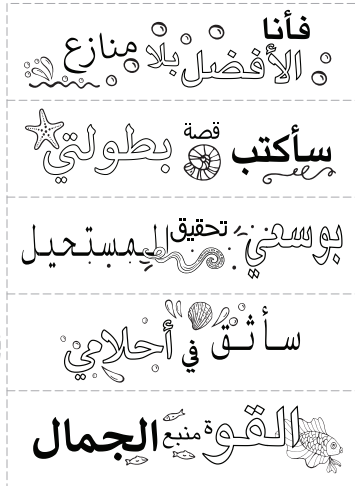 فأنا الأفضل بلا منازع
سأكتب قصة بطولتي
بوسعني تحقيق المستحيل
سأثق في أحلامي
القوة منبع الجمال